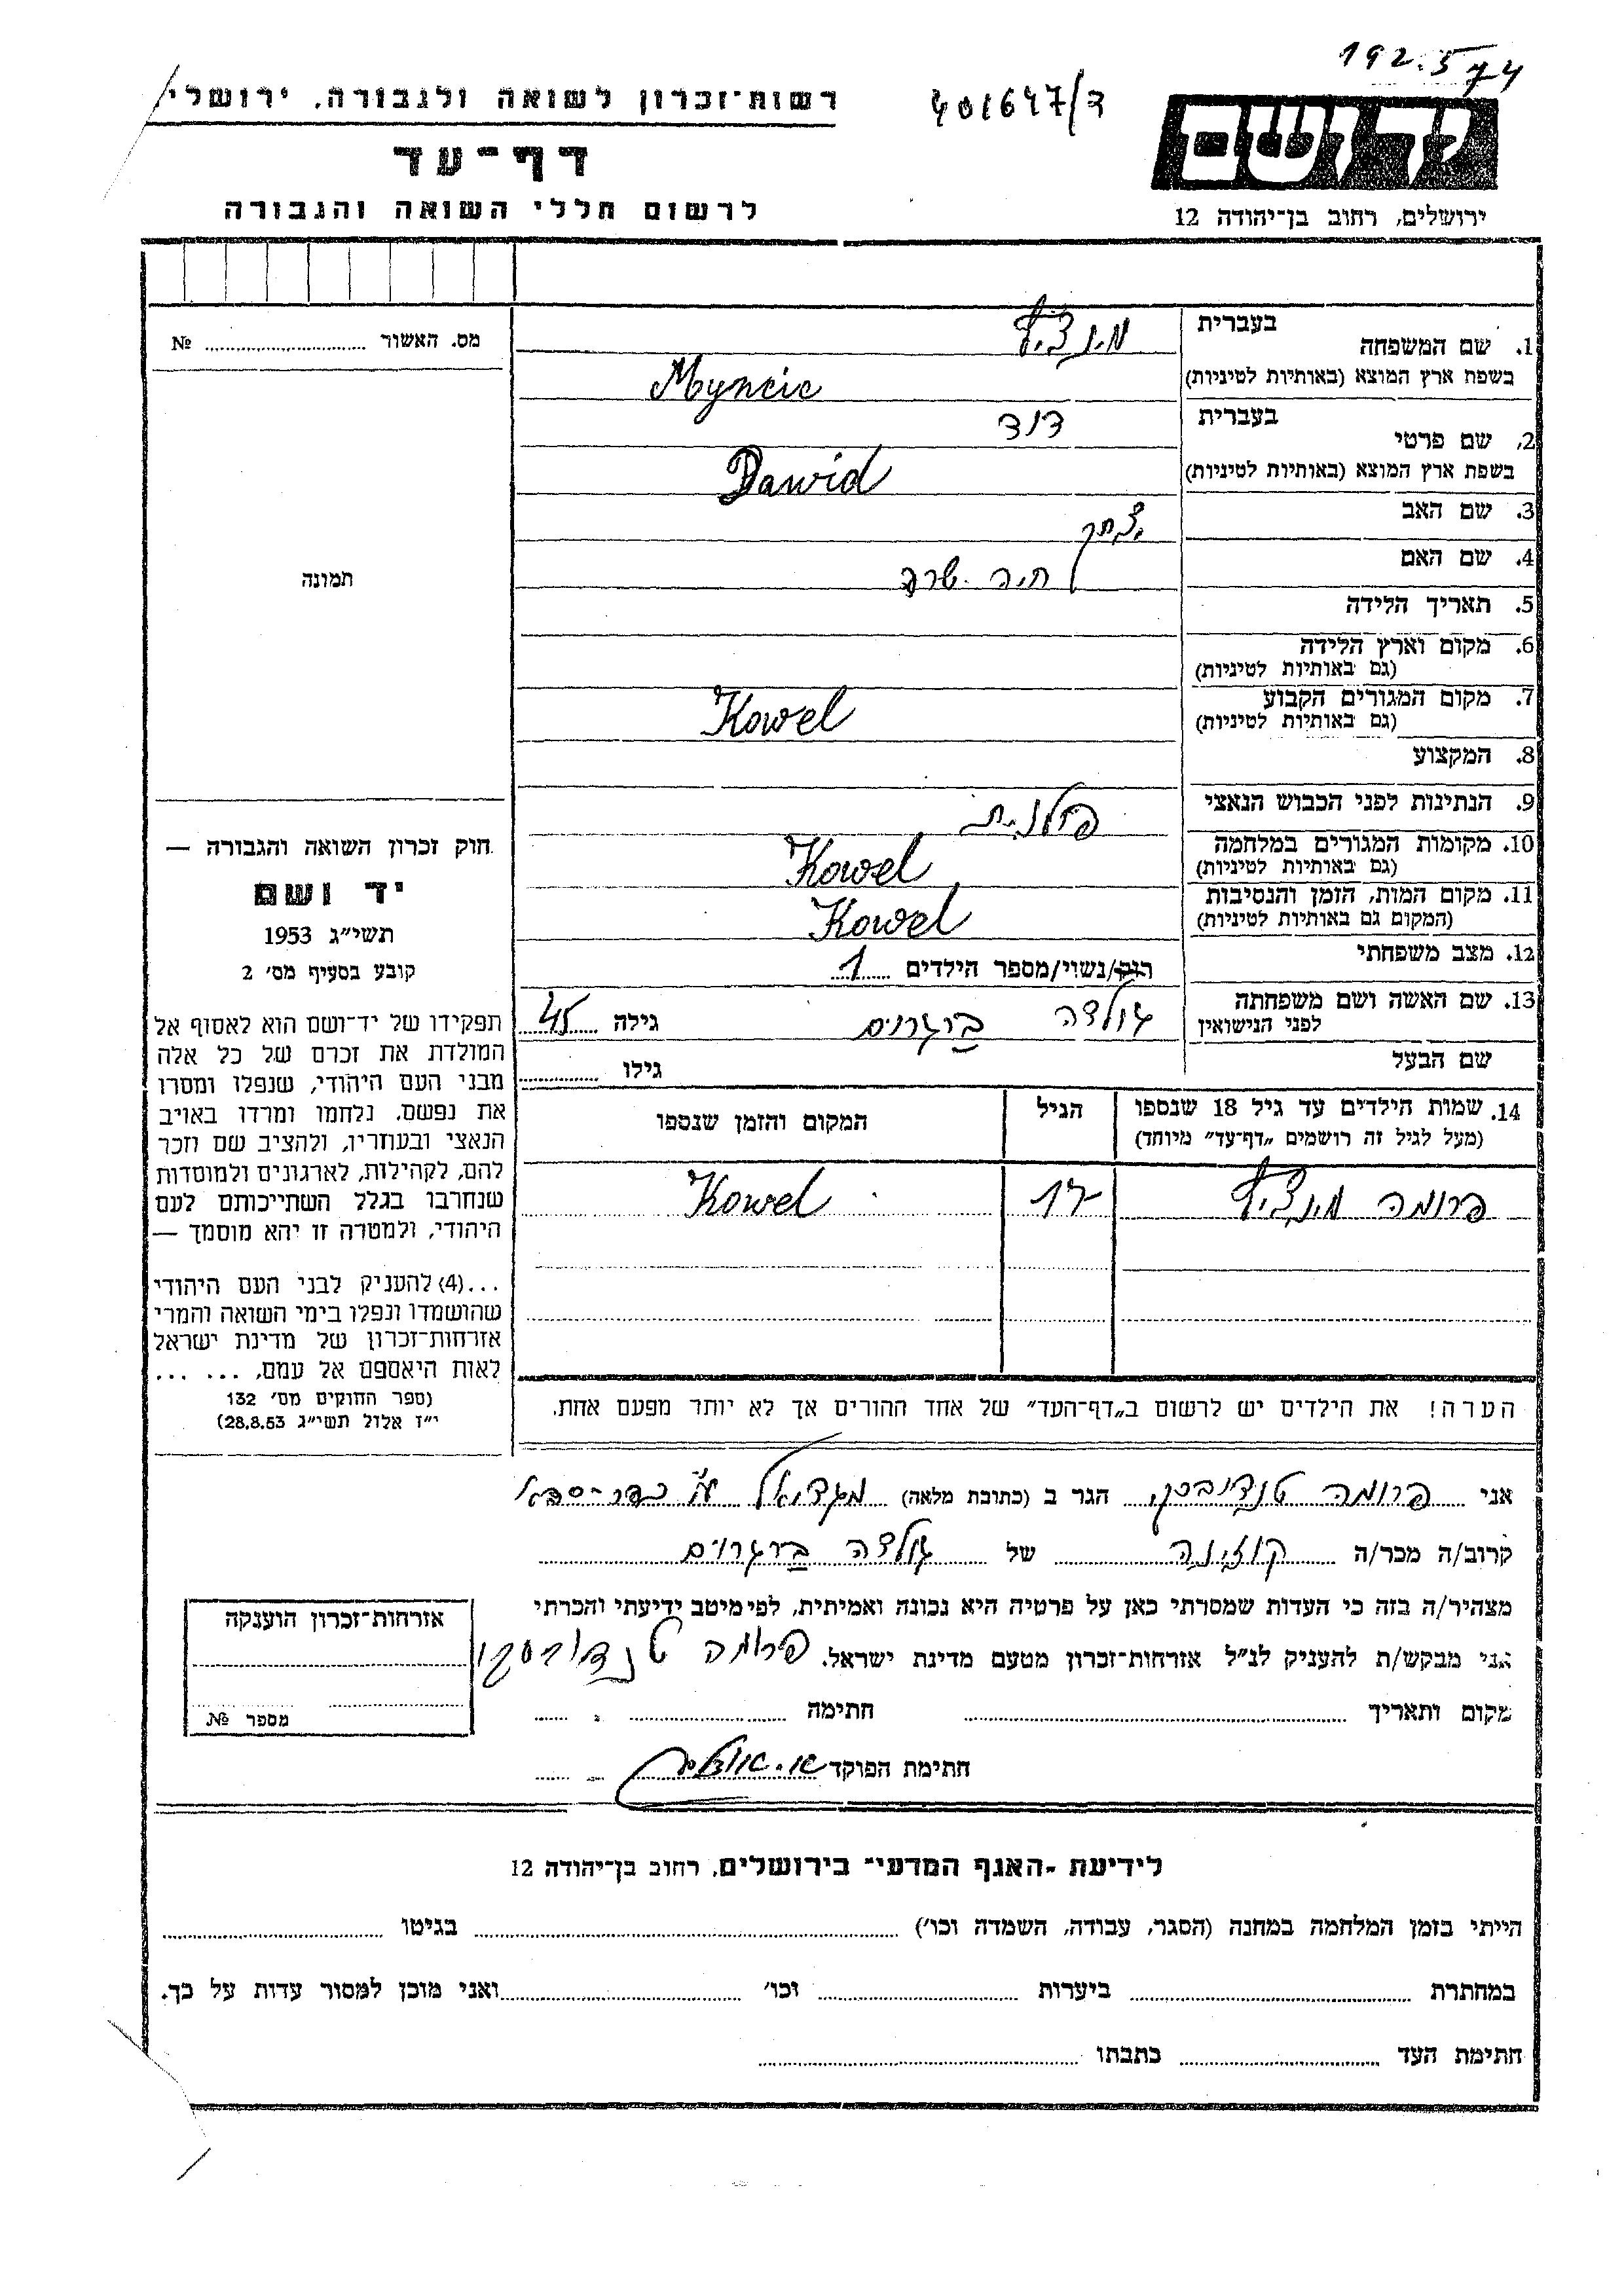 192.574
401647/ד
רשות־זכרון לשואה ולגבורה, ירושלי
דף־עד
לרשום חללי השואה והגבורה
ידושם
ירושלים, רחוב בן־יהודה 12
מס. האשור № 
תמונה
חוק זכרון השואה והגבורה —
יד ושם
תשי״ג 1953
קובע בסעיף מס׳ 2
תפקידו של יד־ושם הוא לאסוף אל
המולדת את זכרם של כל אלה
מבני העם היהודי, שנפלו ומסרו
את נפשם, נלחמו ומרדו באויב
הנאצי ובעוזריו, ולהציב שם וזכר
להם, לקהילות, לארגונים ולמוסדות
שנחרבו בגלל השתייכותם לעם
היהודי, ולמטרה זו יהא מוסמך —
...(4) להעניק לבני העם היהודי
שהושמדו ונפלו בימי השואה והמרי
אזרחות־זכרון של מדינת ישראל
לאות היאספם אל עמם, ... ...
(ספר החוקים מס׳ 132
י״ז אלול תשי״ג 28.8.53)
בעברית
1. שם המשפחה מינציץ
בשפת ארץ המוצא (באותיות לטיניות) Myncic
בעברית
2. שם פרטי דוד
בשפת ארץ המוצא (באותיות לטיניות) Dawid
3. שם האב יצחק
4. שם האם חיה שרה
5. תאריך הלידה
6. מקום וארץ הלידה
(גם באותיות לטיניות)
7. מקום המגורים הקבוע Kowel
(גם באותיות לטיניות)
8. המקצוע
9. הנתינות לפני הכבוש הנאצי פולנית
10. מקומות המגורים במלחמה Kowel
(גם באותיות לטיניות)
11. מקום המות, הזמן והנסיבות Kowel
(המקום גם באותיות לטיניות)
12. מצב משפחתי רווק/נשוי/מספר הילדים 1
13. שם האשה ושם משפחתה גולדה ברגרוים גילה 45
לפני הנישואין
שם הבעל גילו
14. שמות הילדים עד גיל 18 שנספו הגיל המקום והזמן שנספו
(מעל לגיל זה רושמים „דף־עד״ מיוחד)
פרומה מינציץ 17 Kowel
הערה! את הילדים יש לרשום ב„דף־העד״ של אחד ההורים אך לא יותר מפעם אחת.
אני פרומה הגר ב (כתובת מלאה) מגדיאל ע״י כפר-סבא
קרוב/ה מכר/ה קוזינה של גולדה ברגרוים
מצהיר/ה בזה כי העדות שמסרתי כאן על פרטיה היא נכונה ואמיתית, לפי מיטב ידיעתי והכרתי
אני מבקש/ת להעניק לנ״ל אזרחות־זכרון מטעם מדינת ישראל. פרומה
מקום ותאריך חתימה
חתימת הפוקד
אזרחות־זכרון הוענקה
מספר №
לידיעת ־האגף המדעי־ בירושלים, רחוב בן־יהודה 12
הייתי בזמן המלחמה במחנה (הסגר, עבודה, השמדה וכו׳) בגיטו
במחתרת ביערות וכו׳ ואני מוכן למסור עדות על כך.
חתימת העד כתבתו